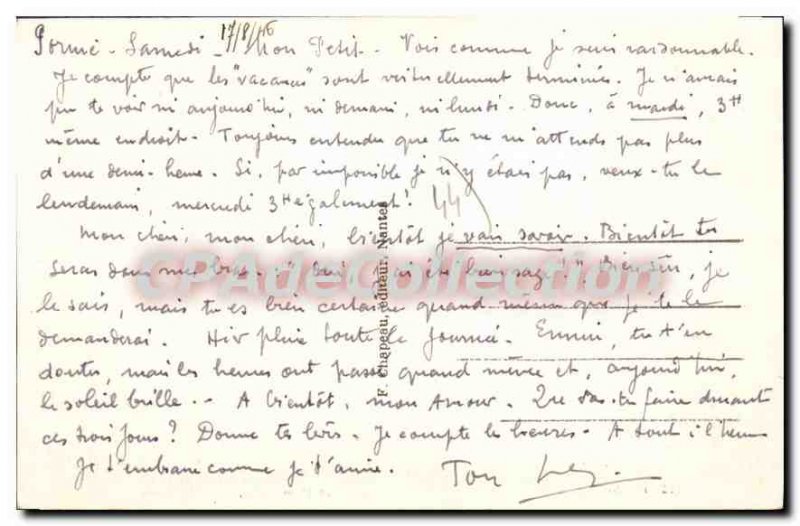 Pornic - Samedi - 17/8/46 Mon Petit - Vois comme je suis raisonnable.
Je compte que les "vacances" sont virtuellement terminées. Je n'aurais
pu te voir ni aujourd'hui, ni demain, ni lundi - Donc, à mardi, 3H
même endroit - Toujours entendu que tu ne m'attends pas plus
d'une demi-heure - Si, par impossible je n'y étais pas, veux-tu le
lendemain, mercredi 3H également ?
44
Mon chéri, mon chéri, bientôt je vais savoir. Bientôt tu
seras dans mes bras. "Oui, j'ai été bien sage!", Bien sûr, je
le sais, mais tu es bien certaine quand même que je te le
demanderai. Hier pluie toute la journée. Ennui, tu t'en
doutes, mais les heures ont passé quand même et, aujourd'hui,
le soleil brille - A bientôt, mon Amour. Que vas-tu faire durant
ces trois jours ? Donne tes lèvres. Je compte les heures - A tout
Je t'embrasse comme je t'aime. Ton
F. Chapeau, éditeur, Nantes
CPADeCollection